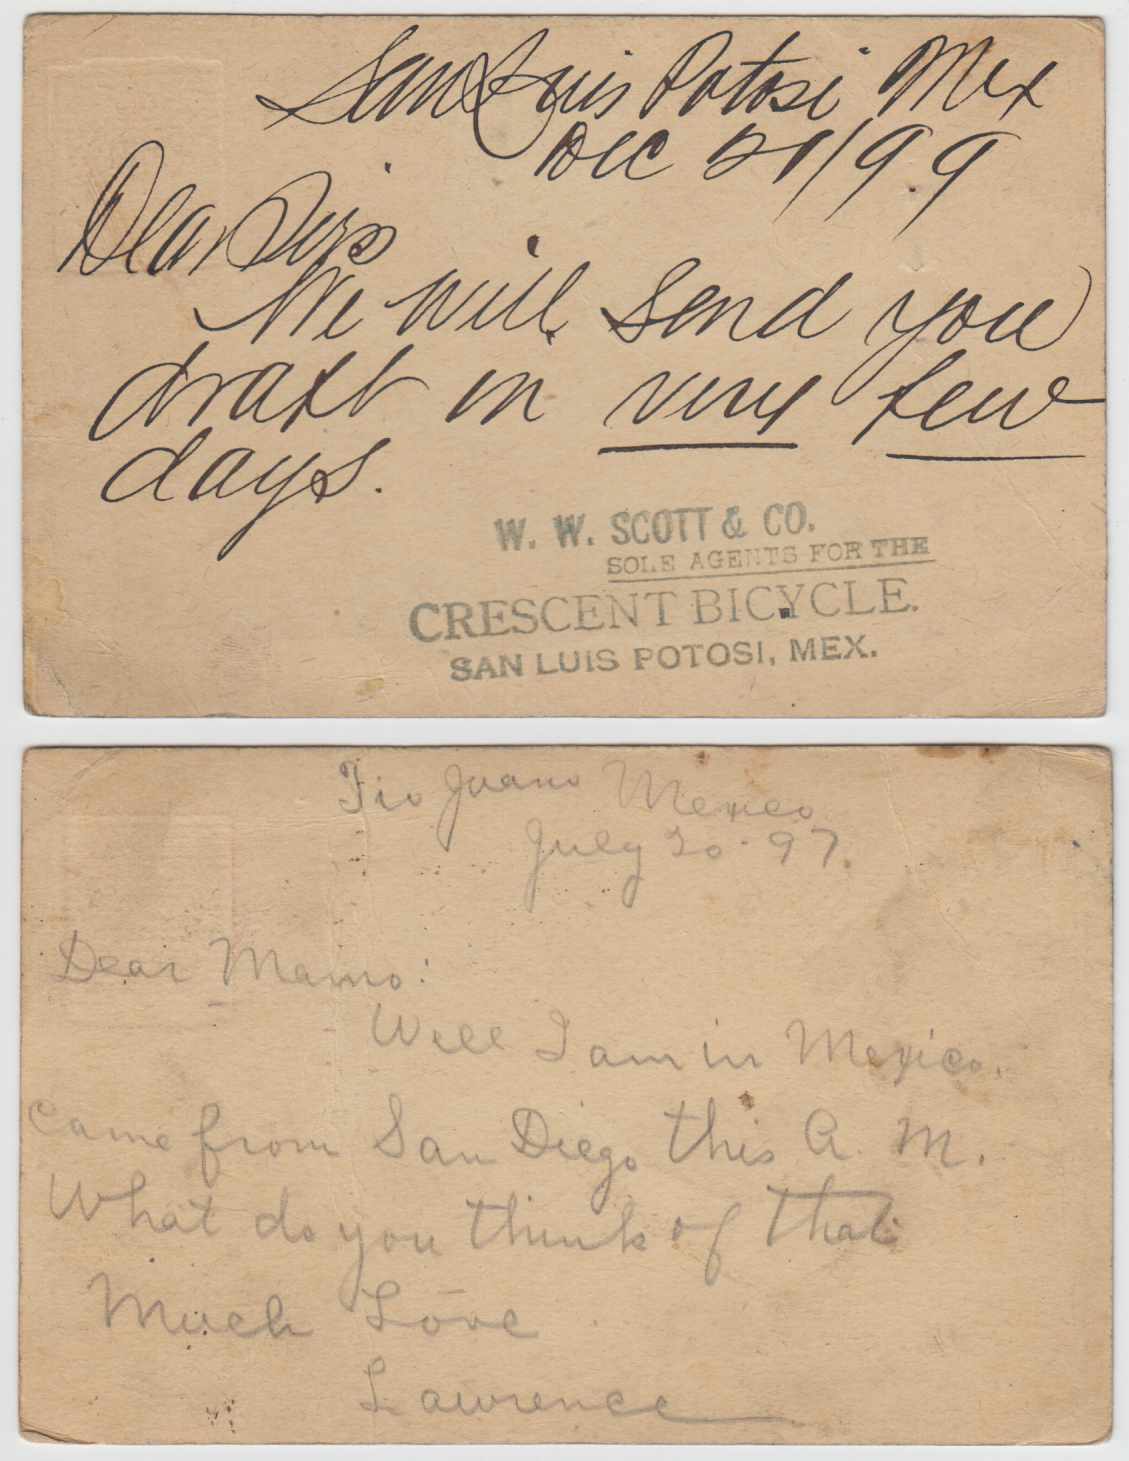 San Luis Potosi Mex
Dec 21/99
Dear Sirs
We will send you
draft in very few
days.
W. W. SCOTT & CO.
SOLE AGENTS FOR THE
CRESCENT BICYCLE.
SAN LUIS POTOSI, MEX.
Tia Juana Mexico
July 20 - 97.
Dear Mama:
Well I am in Mexico.
Came from San Diego this A. M.
What do you think of that
Much Love
Lawrence